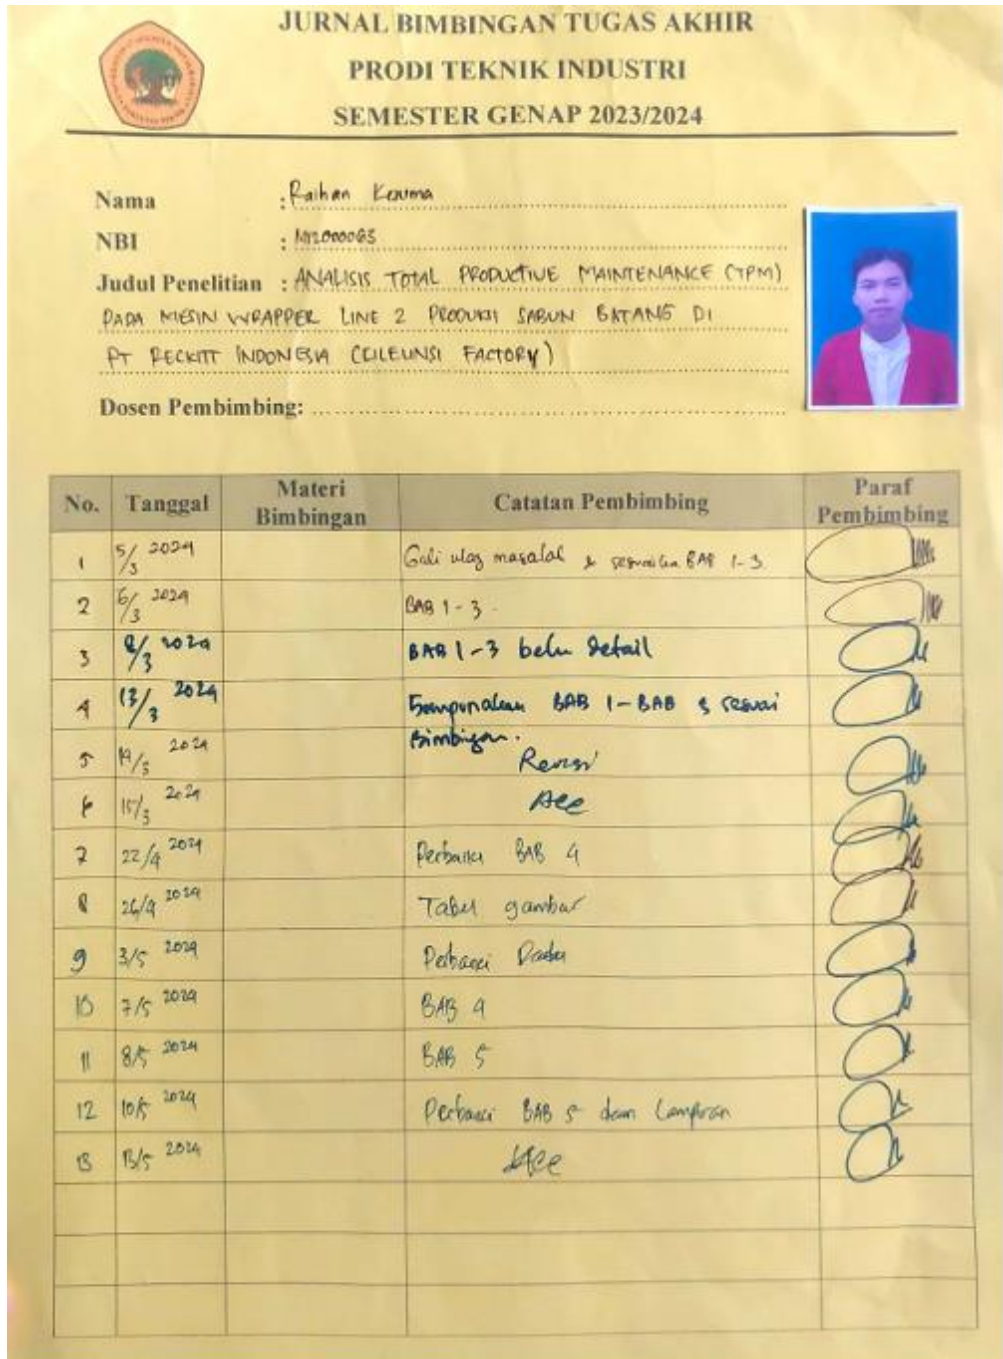 JURNAL BIMBINGAN TUGAS AKHIR
PRODI TEKNIK INDUSTRI
SEMESTER GENAP 2023/2024
Nama : Raihan Kesuma
NBI :
Judul Penelitian : ANALISIS TOTAL PRODUCTIVE MAINTENANCE (TPM)
PADA MESIN WRAPPER LINE 2 PRODUKSI SABUN BATANG DI
PT RECKITT INDONESIA (CILEUNSI FACTORY)
Dosen Pembimbing:
No. Tanggal Materi Bimbingan Catatan Pembimbing Paraf Pembimbing
1 5/3 2024 Gali ulag masalah & BAB 1-3
2 6/3 2024 BAB 1-3.
3 8/3 2024 BAB 1-3 belu detail
4 13/3 2024 BAB 1-BAB 3 sesuai
Bimbingan.
5 14/3 2024 Revisi
6 15/3 2024 Acc
7 22/4 2024 Perbaiki BAB 4
8 26/4 2024 Tabel gambar
9 3/5 2024 Perbaiki
10 7/5 2024 BAB 4
11 8/5 2024 BAB 5
12 10/5 2024 Perbaiki BAB 5 dan Lampiran
13 13/5 2024 Acc